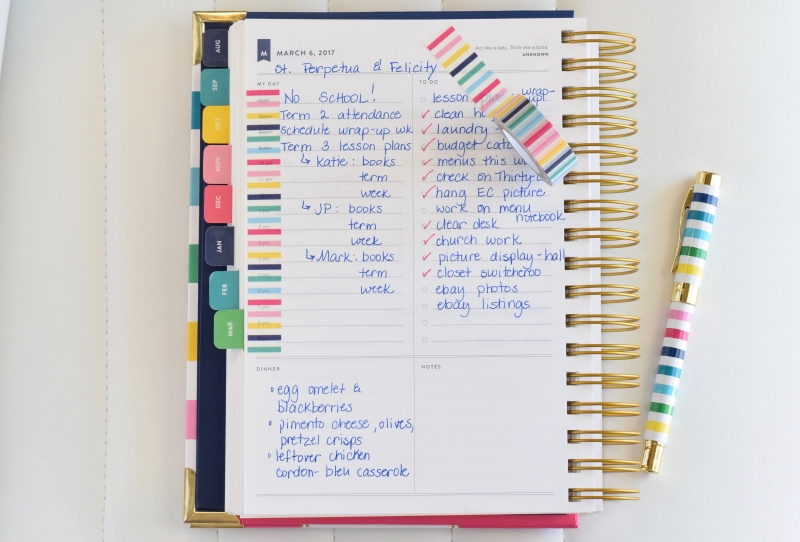 AUG
SEP
OCT
NOV
DEC
JAN
FEB
MAR
M
MARCH 6, 2017
Act like a lady. Think like a boss.
UNKNOWN
St. Perpetua & Felicity
MY DAY
No SCHOOL!
Term 2 attendance
Schedule wrap-up wk
Term 3 lesson plans
↳ Katie: books
term
week
↳ JP: books
term
week
↳ Mark: books
term
week
TO DO
lesson wrap-
clean
laundry
budget
menus this
check on
hang EC picture
work on menu
notebook
clear desk
church work
picture display-hall
closet switcheroo
ebay photos
ebay listings
DINNER
egg omelet &
blackberries
pimento cheese, olives,
pretzel crisps
leftover chicken
cordon-bleu casserole
NOTES